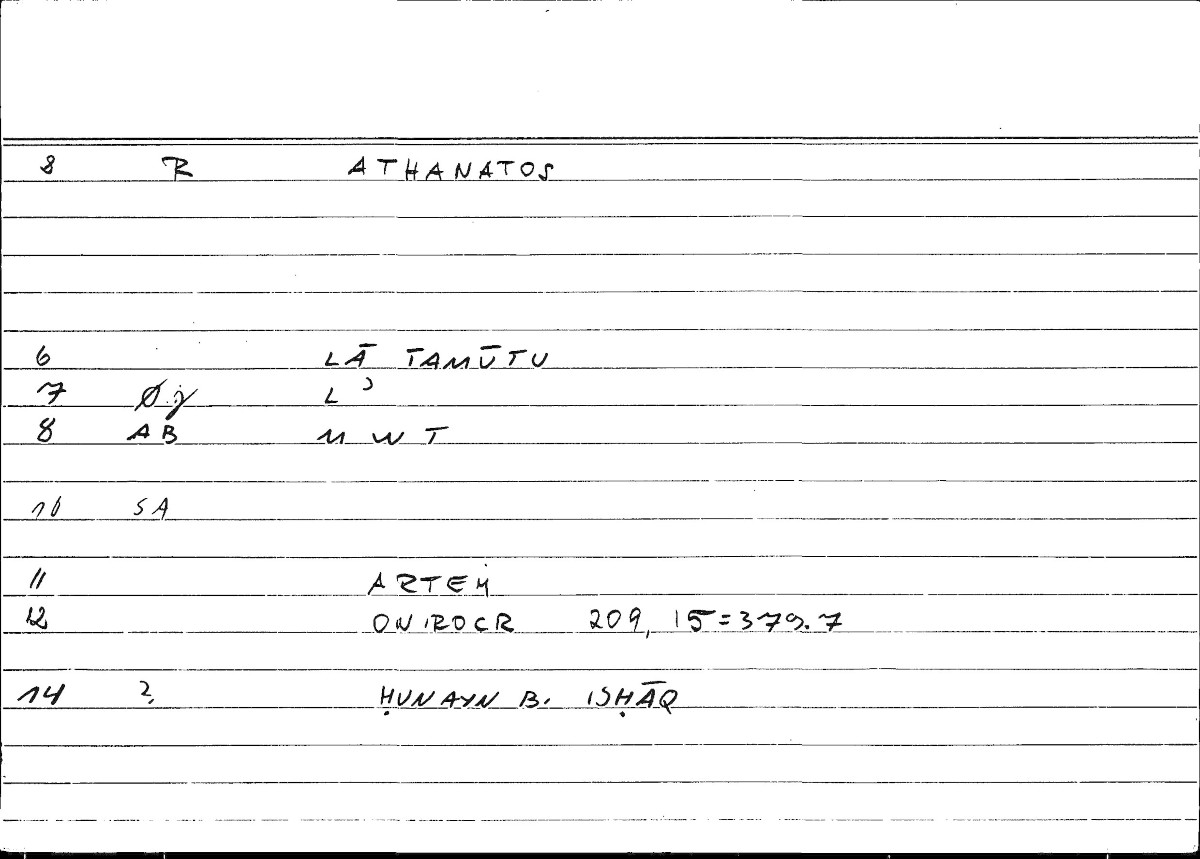 8 R ATHANATOS
6 LĀ TAMŪTU
7 L ʾ
8 AB M W T
10 SA
11 ARTEM
12 ONIROCR 209, 15=379.7
14 2. ḤUNAYN B. ISḤĀQ